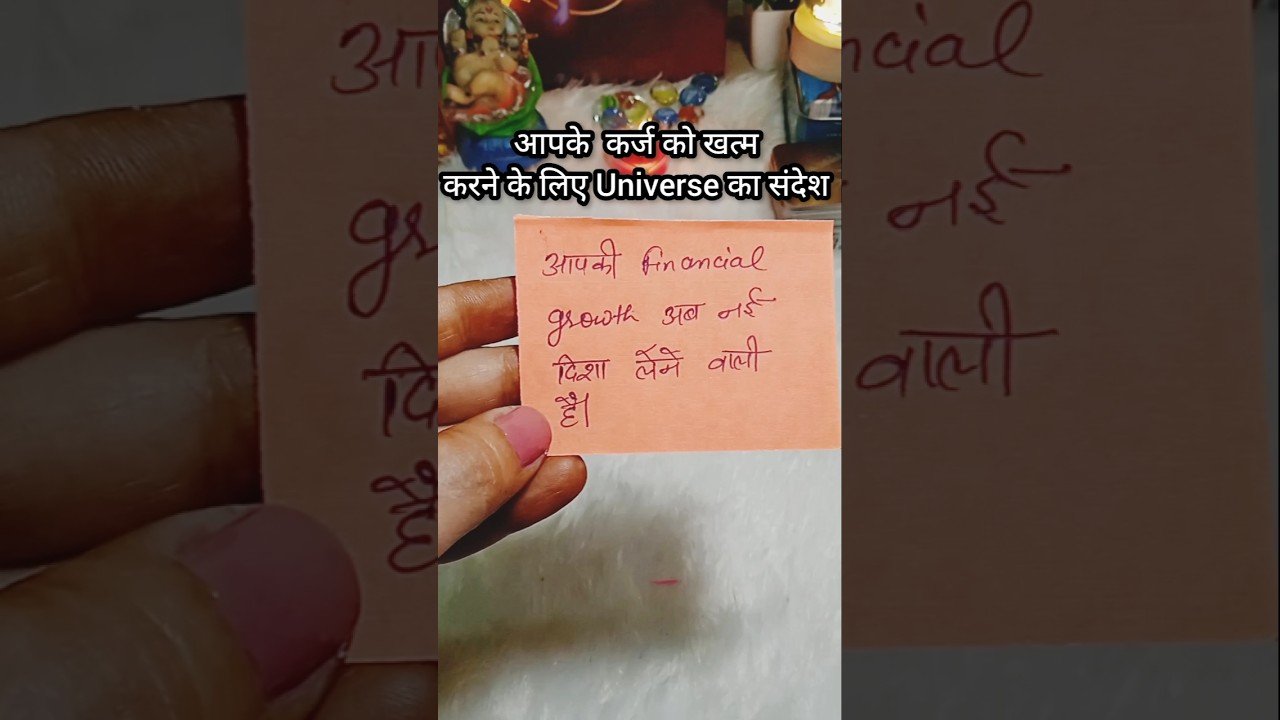 आपके कर्ज को खत्म
करने के लिए Universe का संदेश
आपकी Financial
growth अब नई
दिशा लेने वाली
है।